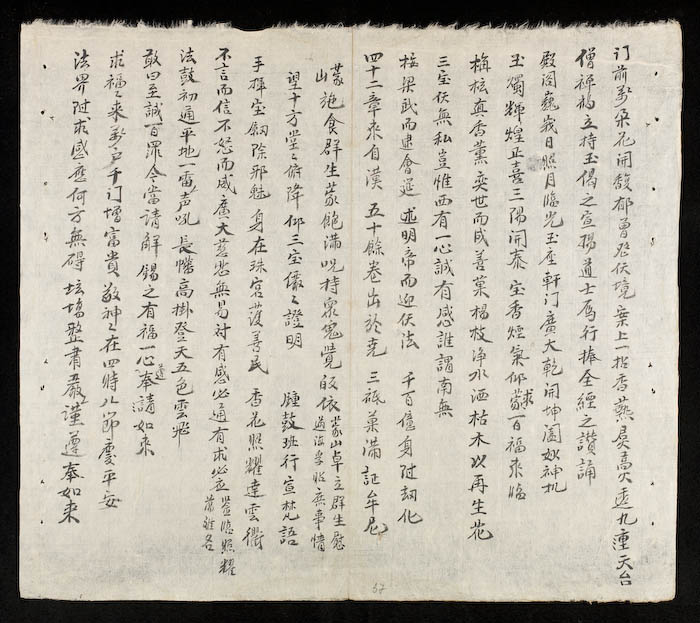 门前萬朵花開馥郁曾飛伏境 案上一指香爇灵高穴透九重天台
僧禪鶴立持玉偈之宣揚 道士雁行捧金經之讚誦
殿阁巍峩日照月臨光玉座 軒门廣大乾開坤闔妙神机
玉燭輝煌正喜三陽開泰 宝香煙氣仰蒙求百福來臨
栴枟真香薰奕世而成善菓 楊枝净水洒枯木以再生花
三宝伏無私豈惟西有 一心誠有感誰謂南無
按梁武而建會筵 述明帝而迎伏法 千百億身附刼化
四十二章來自漢 五十餘卷出於尭 三祇菓滿証牟尼
蒙山施食群生蒙飽滿 呪持衆鬼覺皈依
蒙山卓立群生慰
望十方堂之俯降 仰三宝儼之證明 鐘鼓班行宣梵語
手礕宝劔除邪魅 身在珠宮護善民 香花照耀達雲衢
不言而信不怒而威 廣大慈悲無易討 有感必通有求必应
法鼓初通平地一雷声吼 長幡高掛登天五色雲飛
敢曰至誠百罪今當請解 錫之有福一心遥奉請如來
求福之來萬户千门增富貴 敬神之在四時八節慶平安
法界附求感应何方無碍 坛塲整肅嚴謹遵奉如來
57